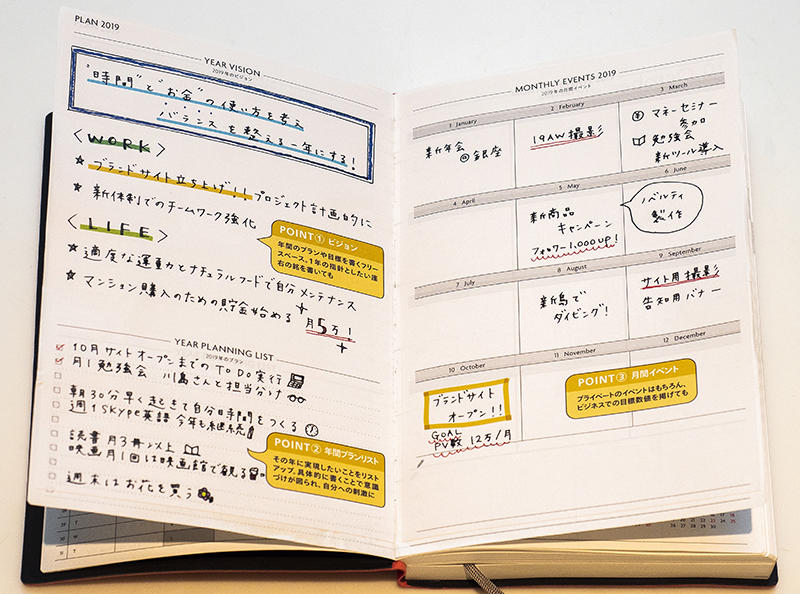 PLAN 2019
YEAR VISION
2019年のビジョン
"時間"と"お金"の使い方を考え
バランスを整える一年にする!
<WORK>
★ブランドサイト立ち上げ!!プロジェクト計画的に
★新体制でのチームワーク強化
<LIFE>
★適度な運動とナチュラルフードで自分メンテナンス
★マンション購入のための貯金始める 月5万!
POINT① ビジョン
年間のプランや目標を書くフリー
スペース。1年の指針としたい座
右の銘を書いても
YEAR PLANNING LIST
2019年のプラン
10月サイトオープンまでのTO DO実行
月1勉強会 川島さんと担当分け
朝30分早く起きて自分時間をつくる
週1Skype英語 今年も継続
読書 月3冊以上
映画月1回は映画館で観る
週末はお花を買う
POINT② 年間プランリスト
その年に実現したいことをリスト
アップ。具体的に書くことで意識
づけが図られ、自分への刺激に
MONTHLY EVENTS 2019
2019年の月間イベント
1 January
新年会
@銀座
2 February
19AW撮影
3 March
マネーセミナー
参加
勉強会
新ツール導入
4 April
5 May
新商品
キャンペーン
フォロワー1,000UP!
6 June
ノベルティ
製作
7 July
8 August
新島で
ダイビング!
9 September
サイト用撮影
告知用バナー
10 October
ブランドサイト
オープン!!
GOAL
PV数 12万/月
11 November
12 December
POINT③ 月間イベント
プライベートのイベントはもちろん、
ビジネスでの目標数値を掲げても